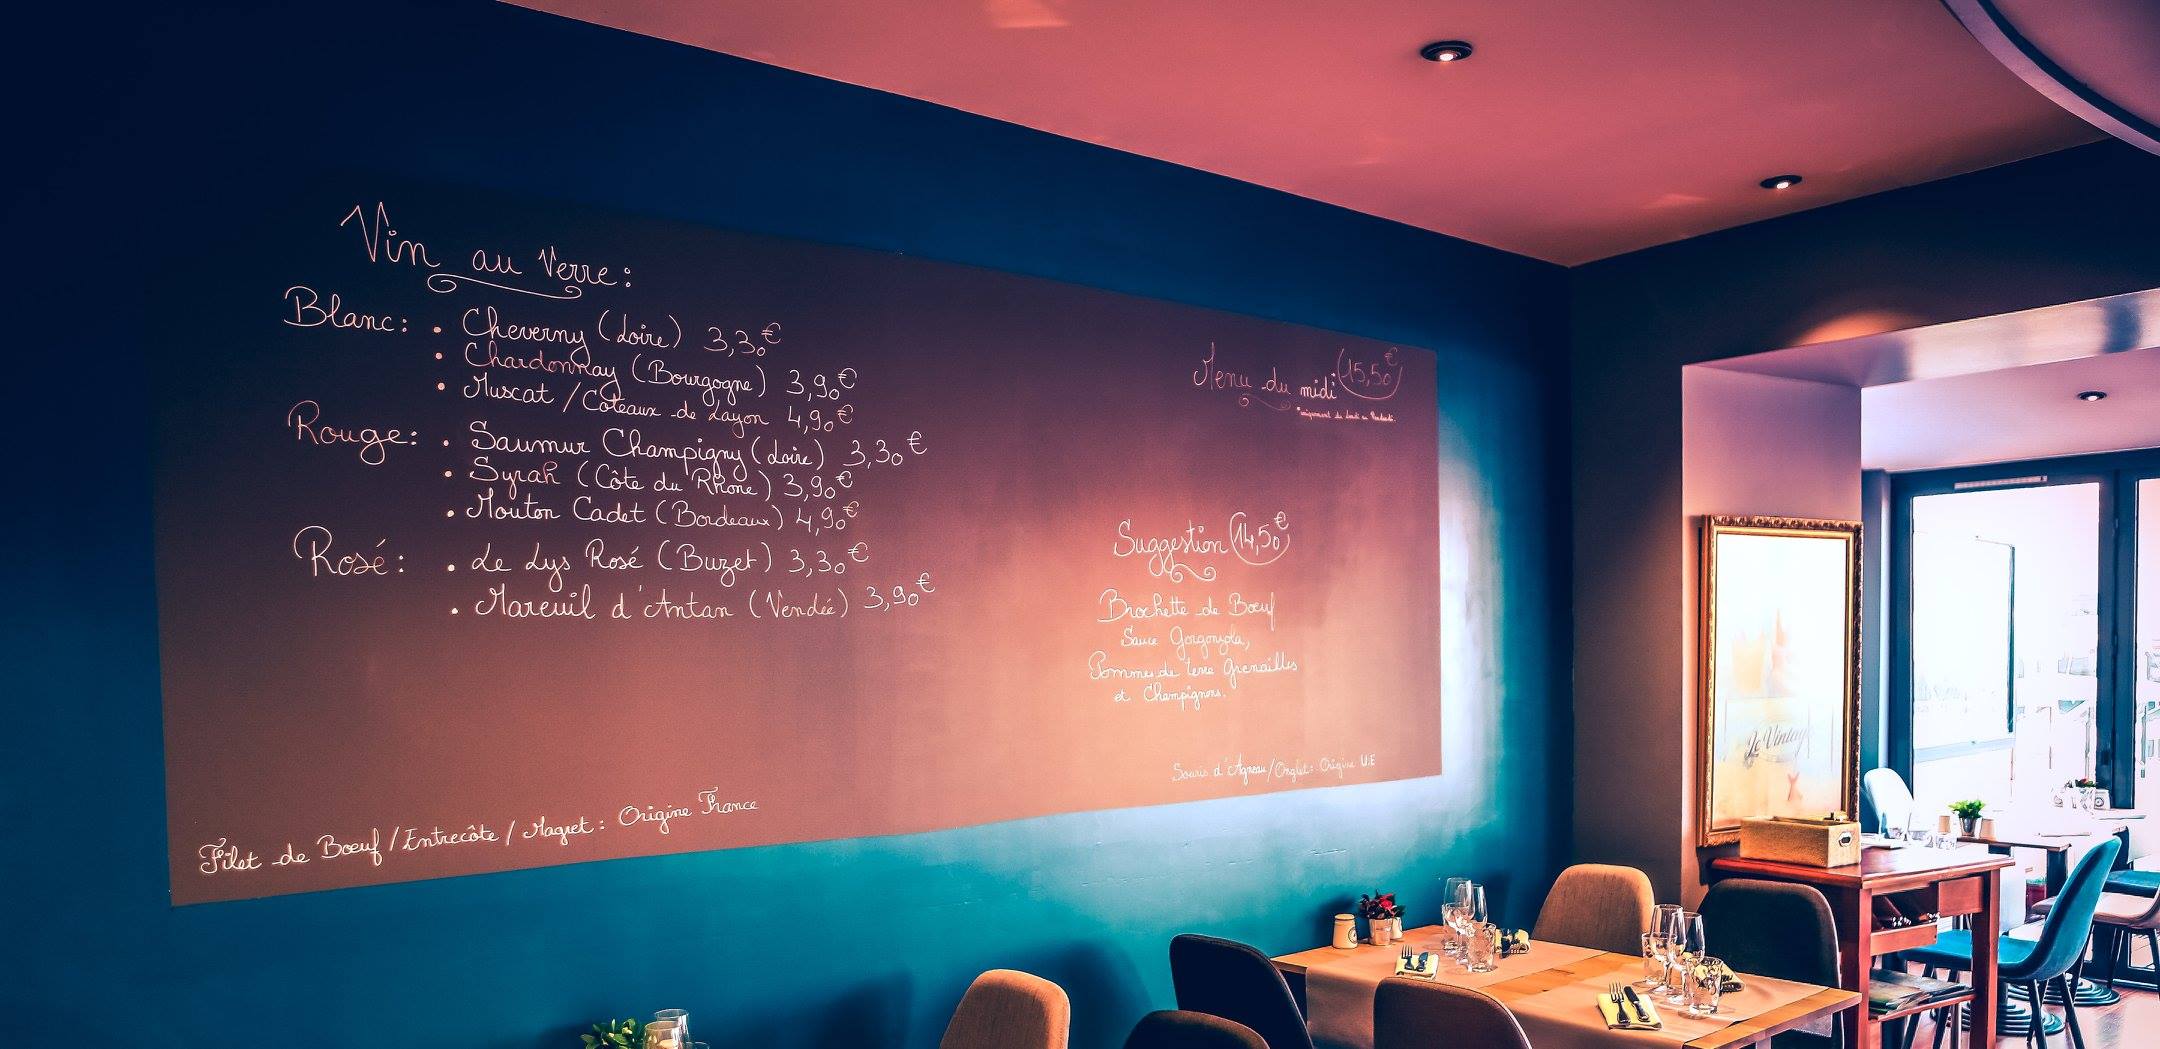 Vin au Verre :
Blanc : • Cheverny (Loire) 3,30€
• Chardonnay (Bourgogne) 3,90€
• Muscat / Coteaux de Layon 4,90€
Rouge : • Saumur Champigny (Loire) 3,30€
• Syrah (Côte du Rhone) 3,90€
• Mouton Cadet (Bordeaux) 4,90€
Rosé : • Le Lys Rosé (Buzet) 3,30€
• Mareuil d'Antan (Vendée) 3,90€
Filet de Bœuf / Entrecôte / Magret : Origine France
Menu du midi* 15,50€
*uniquement du Lundi au Vendredi.
Suggestion 14,50€
Brochette de Bœuf
Sauce Gorgonzola,
Pommes de terre Grenailles
et Champignons.
Souris d'Agneau / Onglet : Origine U.E
Le Vintage